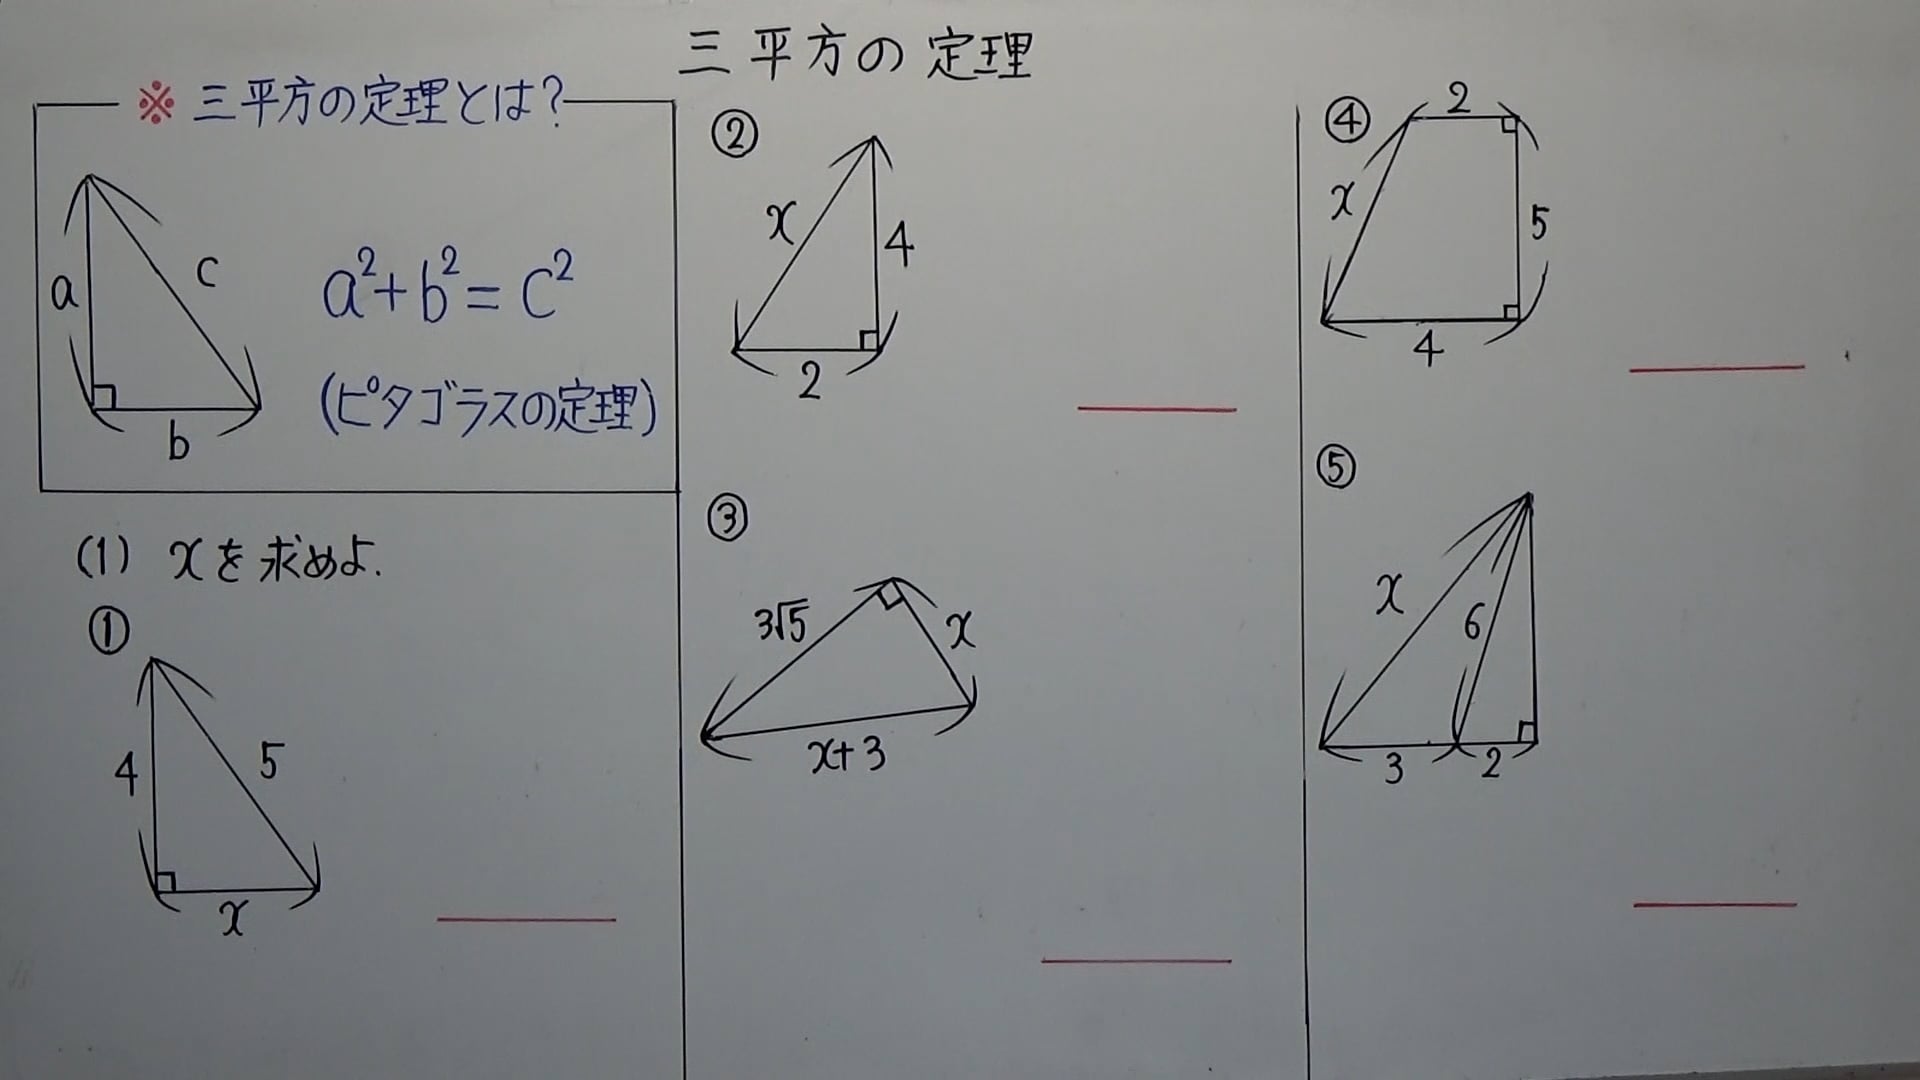 三平方の定理
※ 三平方の定理とは?
a
c
b
a²+b²=c²
(ピタゴラスの定理)
(1) xを求めよ.
①
4
5
x
②
x
4
2
③
3√5
x
x+3
④
2
x
5
4
⑤
x
6
3
2